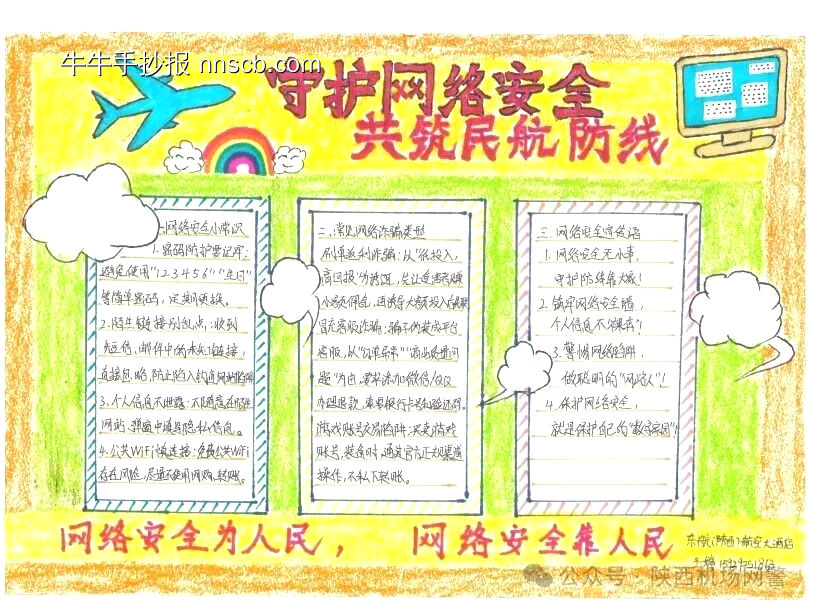 牛牛手抄报 nnscb.com
守护网络安全
共筑民航防线
一.网络安全小常识
1.密码防护要记牢:
避免使用"123456""生日"
等简单密码,定期更换。
2.陌生链接别乱点:收到
短信、邮件中的未知链接,
直接忽略,防止陷入钓鱼网站陷阱
3.个人信息不泄露:不随意在陌生
网站、弹窗中填写隐私信息。
4.公共WiFi慎连接:免费公共WiFi
存在风险,尽量不使用网购、转账。
二、常见网络诈骗类型
刷单返利诈骗:以"低投入,
高回报"为诱饵,先让受害者赚
小额佣金,再诱导大额投入后跑路
冒充客服诈骗:骗子伪装成平台
客服,以"订单异常""商品质量问
题"为由,要求添加微信/QQ
办理退款,索要银行卡号和验证码。
游戏账号交易陷阱:买卖游戏
账号、装备时,通过官方正规渠道
操作,不私下转账。
三.网络安全宣传语
1.网络安全无小事,
守护防线靠大家!
2.筑牢网络安全墙,
个人信息不"裸奔"!
3.警惕网络陷阱,
做聪明的"网络人"!
4.保护网络安全,
就是保护自己的"数字家园"!
网络安全为人民,
网络安全靠人民
东航(陕西)航空大酒店
公众号·陕西机场网警